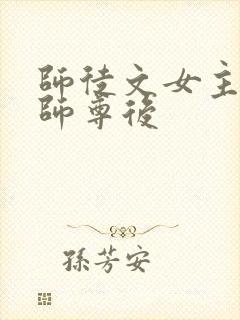 師徒文女主
師尊後
孫芳安